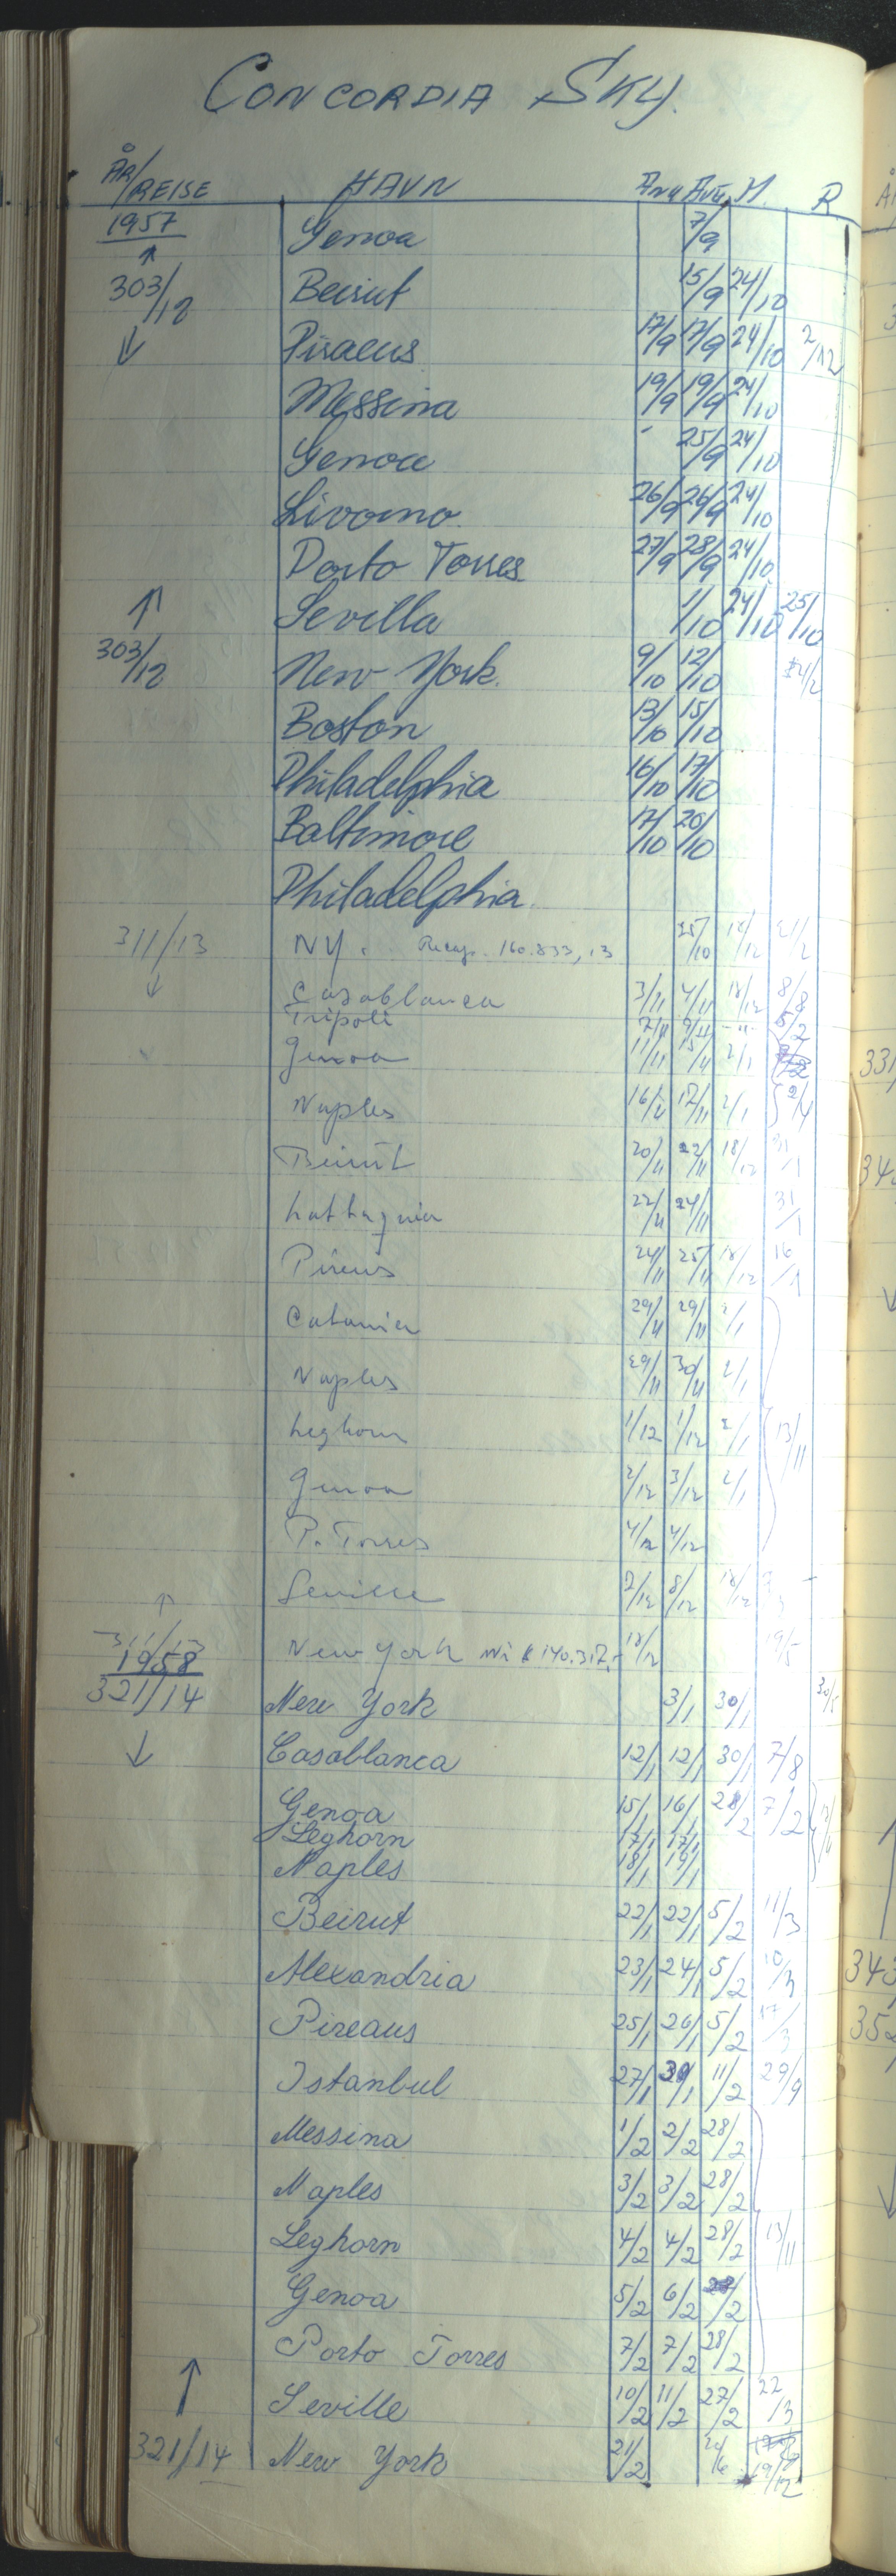 CONCORDIA SKY.
ÅR/REISE HAVN Ank Avg. M. R
1957 Genoa 7/9
303/12 Beirut 15/9 24/10
Piraeus 17/9 17/9 24/10 2/12
Messina 19/9 19/9 24/10
Genoa 25/9 24/10
Livorno. 26/9 26/9 24/10
Porto Torres 27/9 28/9 24/10
Sevilla 1/10 24/10 25/10
303/12 New York. 9/10 12/10
Boston 13/10 15/10
Philadelphia 16/10 17/10
Baltimore 17/10 20/10
Philadelphia.
311/13 NY. Recap. 160.833,13 25/10 18/12 21/2
Casablanca 3/11 4/11 18/12 8/8
Tripoli 7/11 9/11 -"- 5/2
Genoa 11/11 15/11 2/1
Naples 16/11 17/11 2/1 2/4
Beirut 20/11 22/11 18/12 31/1
Lattaquia 22/11 24/11 31/1
Pireus 24/11 25/11 18/12 16/1
Catania 29/11 29/11 2/1
Naples 29/11 30/11 2/1
Leghorn 1/12 1/12 2/1 13/11
Genoa 2/12 3/12 2/1
P. Torres 4/12 4/12
Seville 7/12 8/12 18/12
311/13 New York 140.317,- 18/12 19/5
1958
321/14 New York 3/1 30/1 30/5
Casablanca 12/1 12/1 30/1 7/8
Genoa 15/1 16/1 28/2 7/2
Leghorn 17/1 17/1
Naples 18/1 19/1
Beirut 22/1 22/1 5/2 11/3
Alexandria 23/1 24/1 5/2 10/3
Pireaus 25/1 26/1 5/2 17/3
Istanbul 27/1 30/1 11/2 29/9
Messina 1/2 2/2 28/2
Naples 3/2 3/2 28/2
Leghorn 4/2 4/2 28/2 13/11
Genoa 5/2 6/2 28/2
Porto Torres 7/2 7/2 28/2
Seville 10/2 11/2 27/2 22/3
321/14 New York 21/2 24/6 19/12
331
343
352